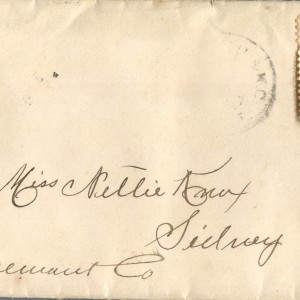 Miss Nettie Knox
Sidney
emont Co